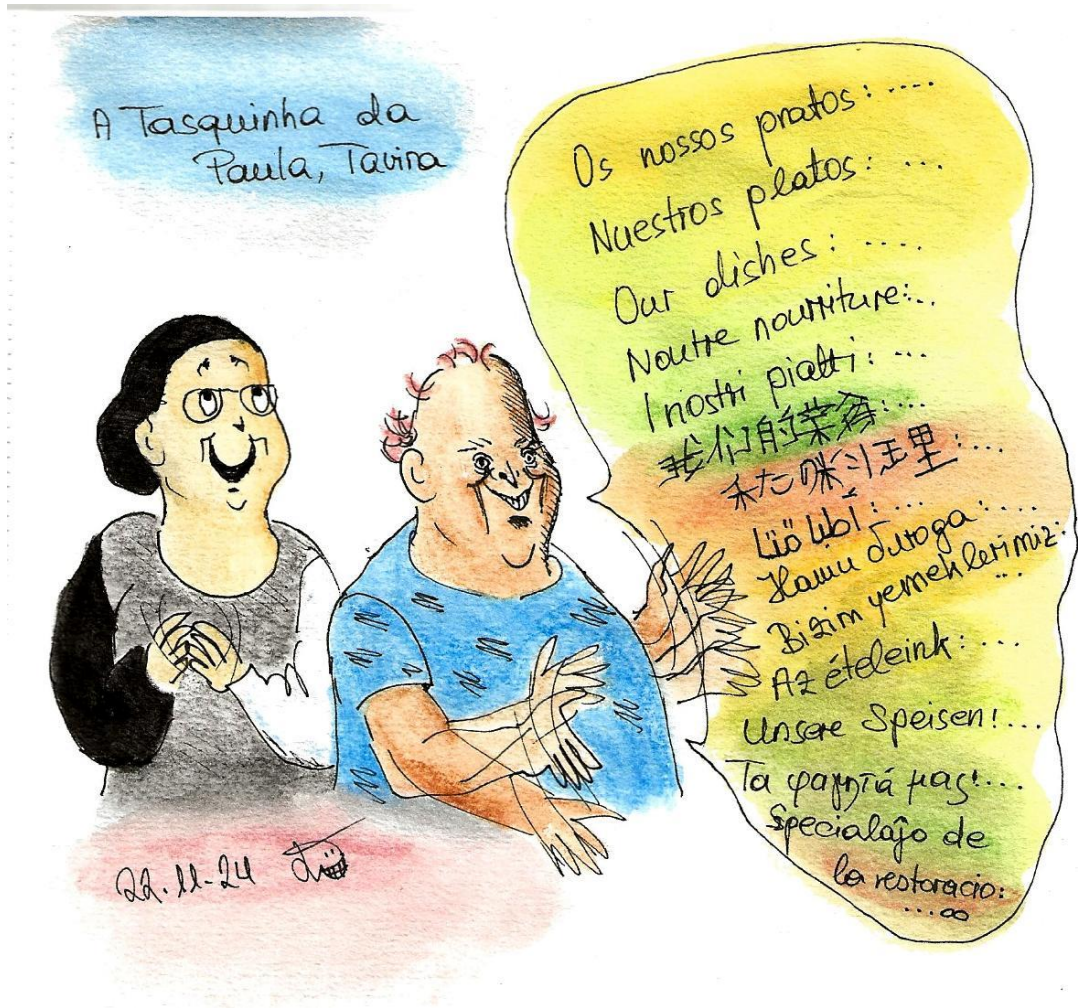 A Tasquinha da
Paula, Tavira
Os nossos pratos: ....
Nuestros platos: ...
Our dishes: ....
Noutre nourriture:..
I nostri piatti: ...
我们的菜肴:...
Наши блюда: ....
Bizim yemeklerimiz:
...
Az ételeink: ...
Unsere Speisen: ...
Τα φαγητά μας: ...
Specialaĵo de
la restoracio:
....∞
22-11-24